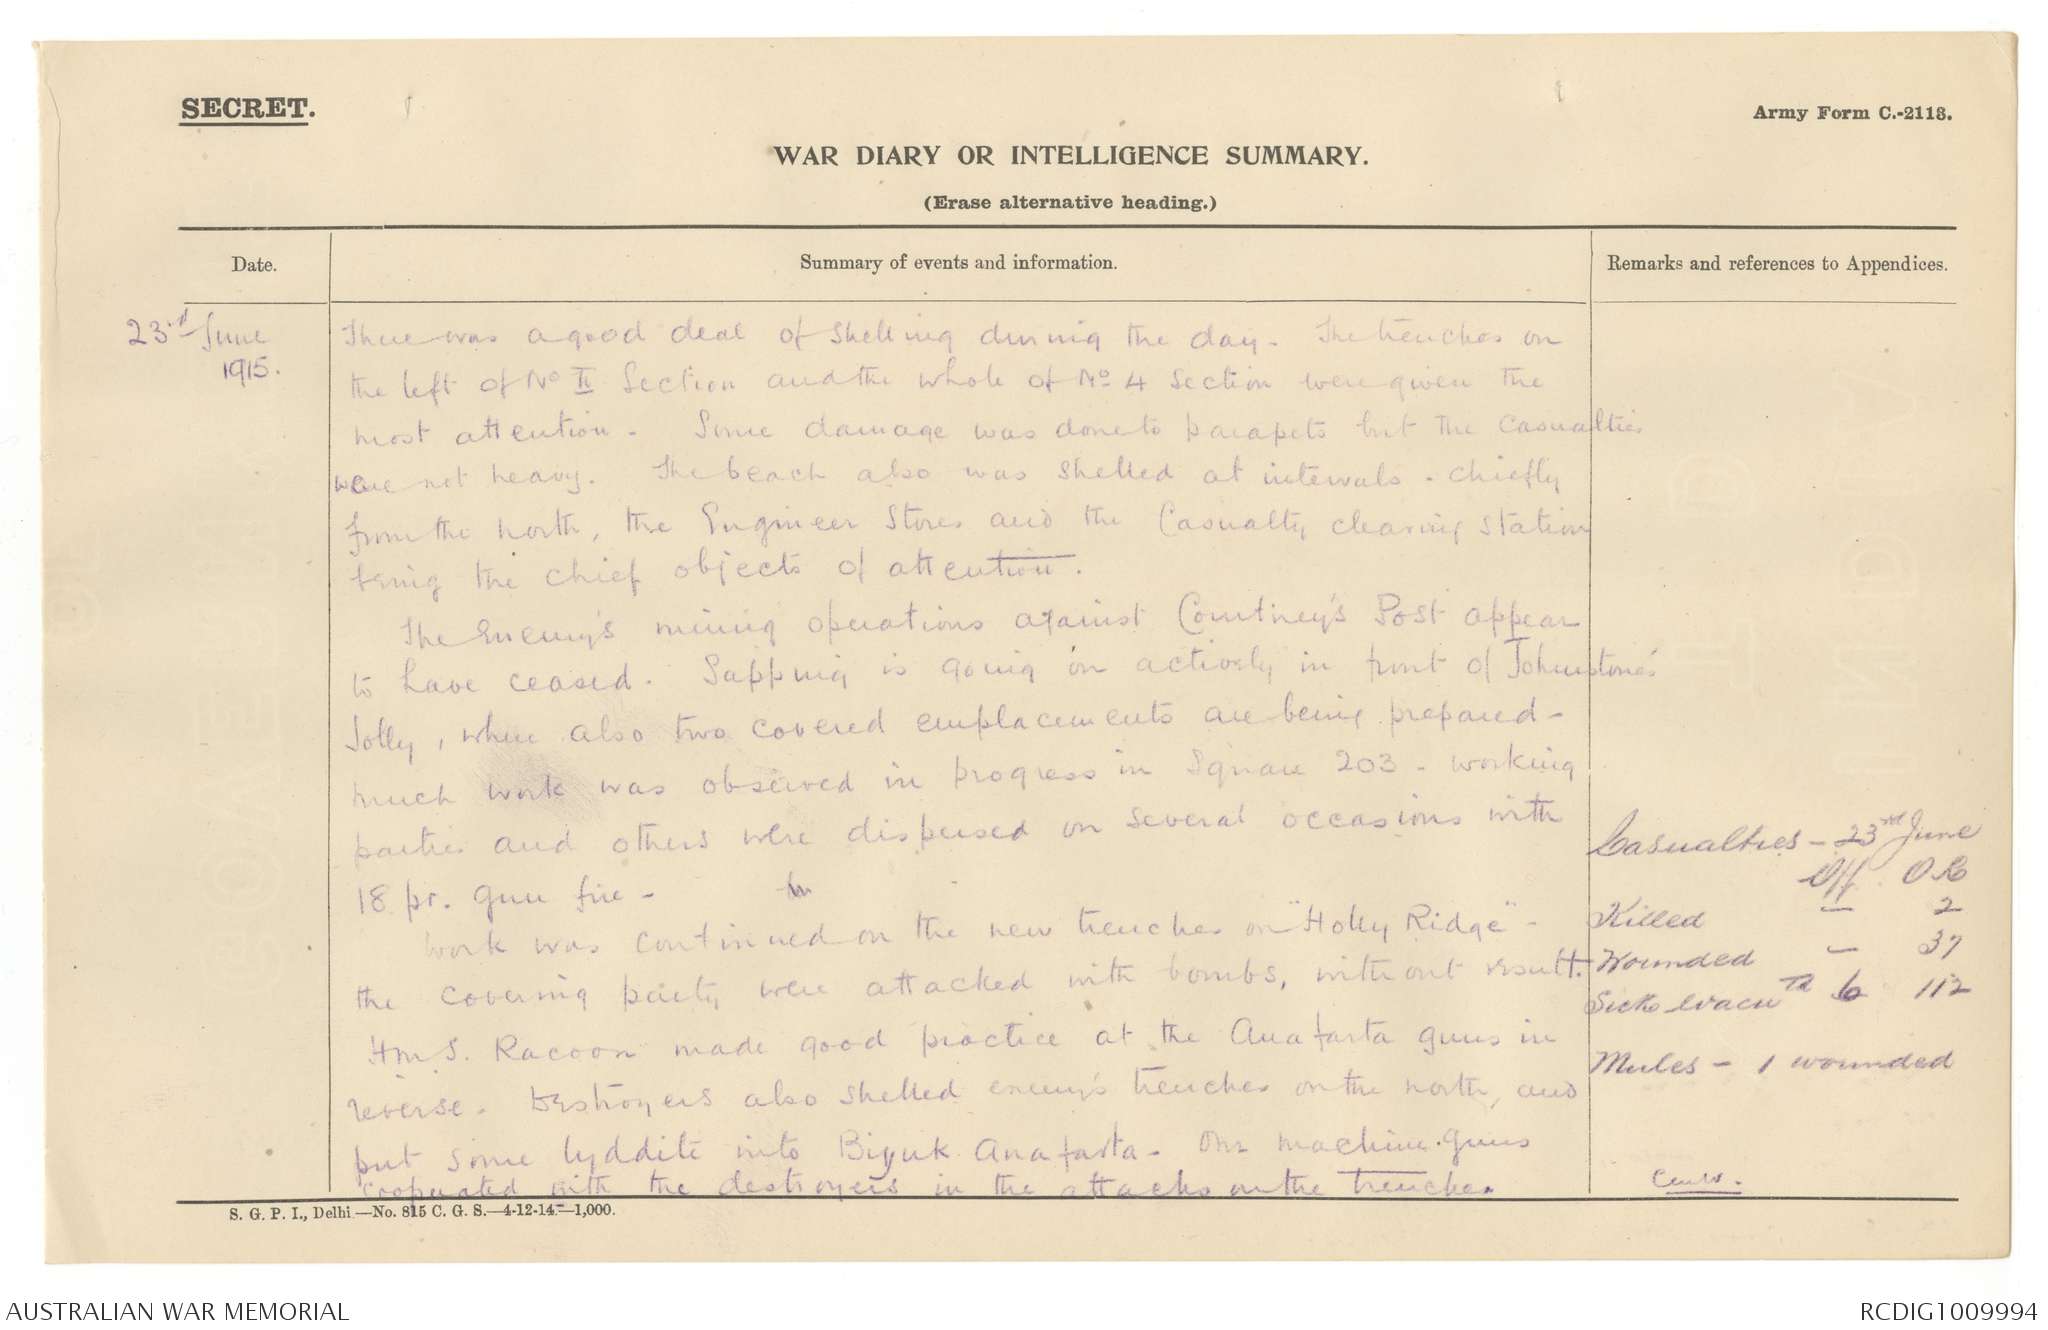 SECRET.
Army Form C.-2118.
WAR DIARY OR INTELLIGENCE SUMMARY.
(Erase alternative heading.)
Date.
Summary of events and information.
Remarks and references to Appendices.
23rd June
1915.
There was a good deal of shelling during the day. The trenches on
the left of No II Section and the whole of No 4 Section were given the
most attention. Some damage was done to parapets but the casualties
were not heavy. The beach also was shelled at intervals - chiefly
from the north, the Engineer Stores and the Casualty clearing station
being the chief objects of attention.
The Enemy's mining operations against Courtney's Post appear
to have ceased. Sapping is going on actively in front of Johnstone's
Jolly, where also two covered emplacements are being prepared -
much work was observed in progress in Square 203 - working
parties and others were dispersed on several occasions with
18 pr. gun fire -
Work was continued on the new trenches on "Holly Ridge" -
the covering party were attacked with bombs, without result.
H.M.S. Racoon made good practice at the Anafarta guns in
reverse. Destroyers also shelled enemy's trenches on the north, and
put some lyddite into Biyuk Anafarta - Our machine guns
cooperated with the destroyers in the attacks on the trenches
Casualties - 23rd June
Off. OR
Killed - 2
Wounded - 37
Sick evacu td 6 112
Mules - 1 wounded
S. G. P. I., Delhi.—No. 815 C. G. S.—4-12-14.—1,000.
AUSTRALIAN WAR MEMORIAL
RCDIG1009994